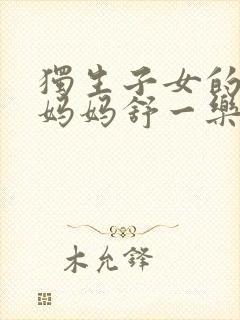 獨生子女的
妈妈舒一樂
木允鋒